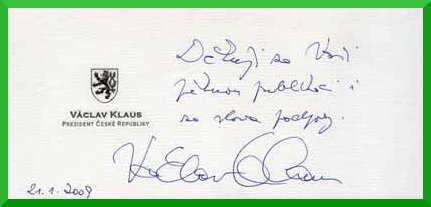 Děkuji za Vaši
pěknou publikaci i
za slova podpory.
VÁCLAV KLAUS
PREZIDENT ČESKÉ REPUBLIKY
Václav Klaus
21.1.2009